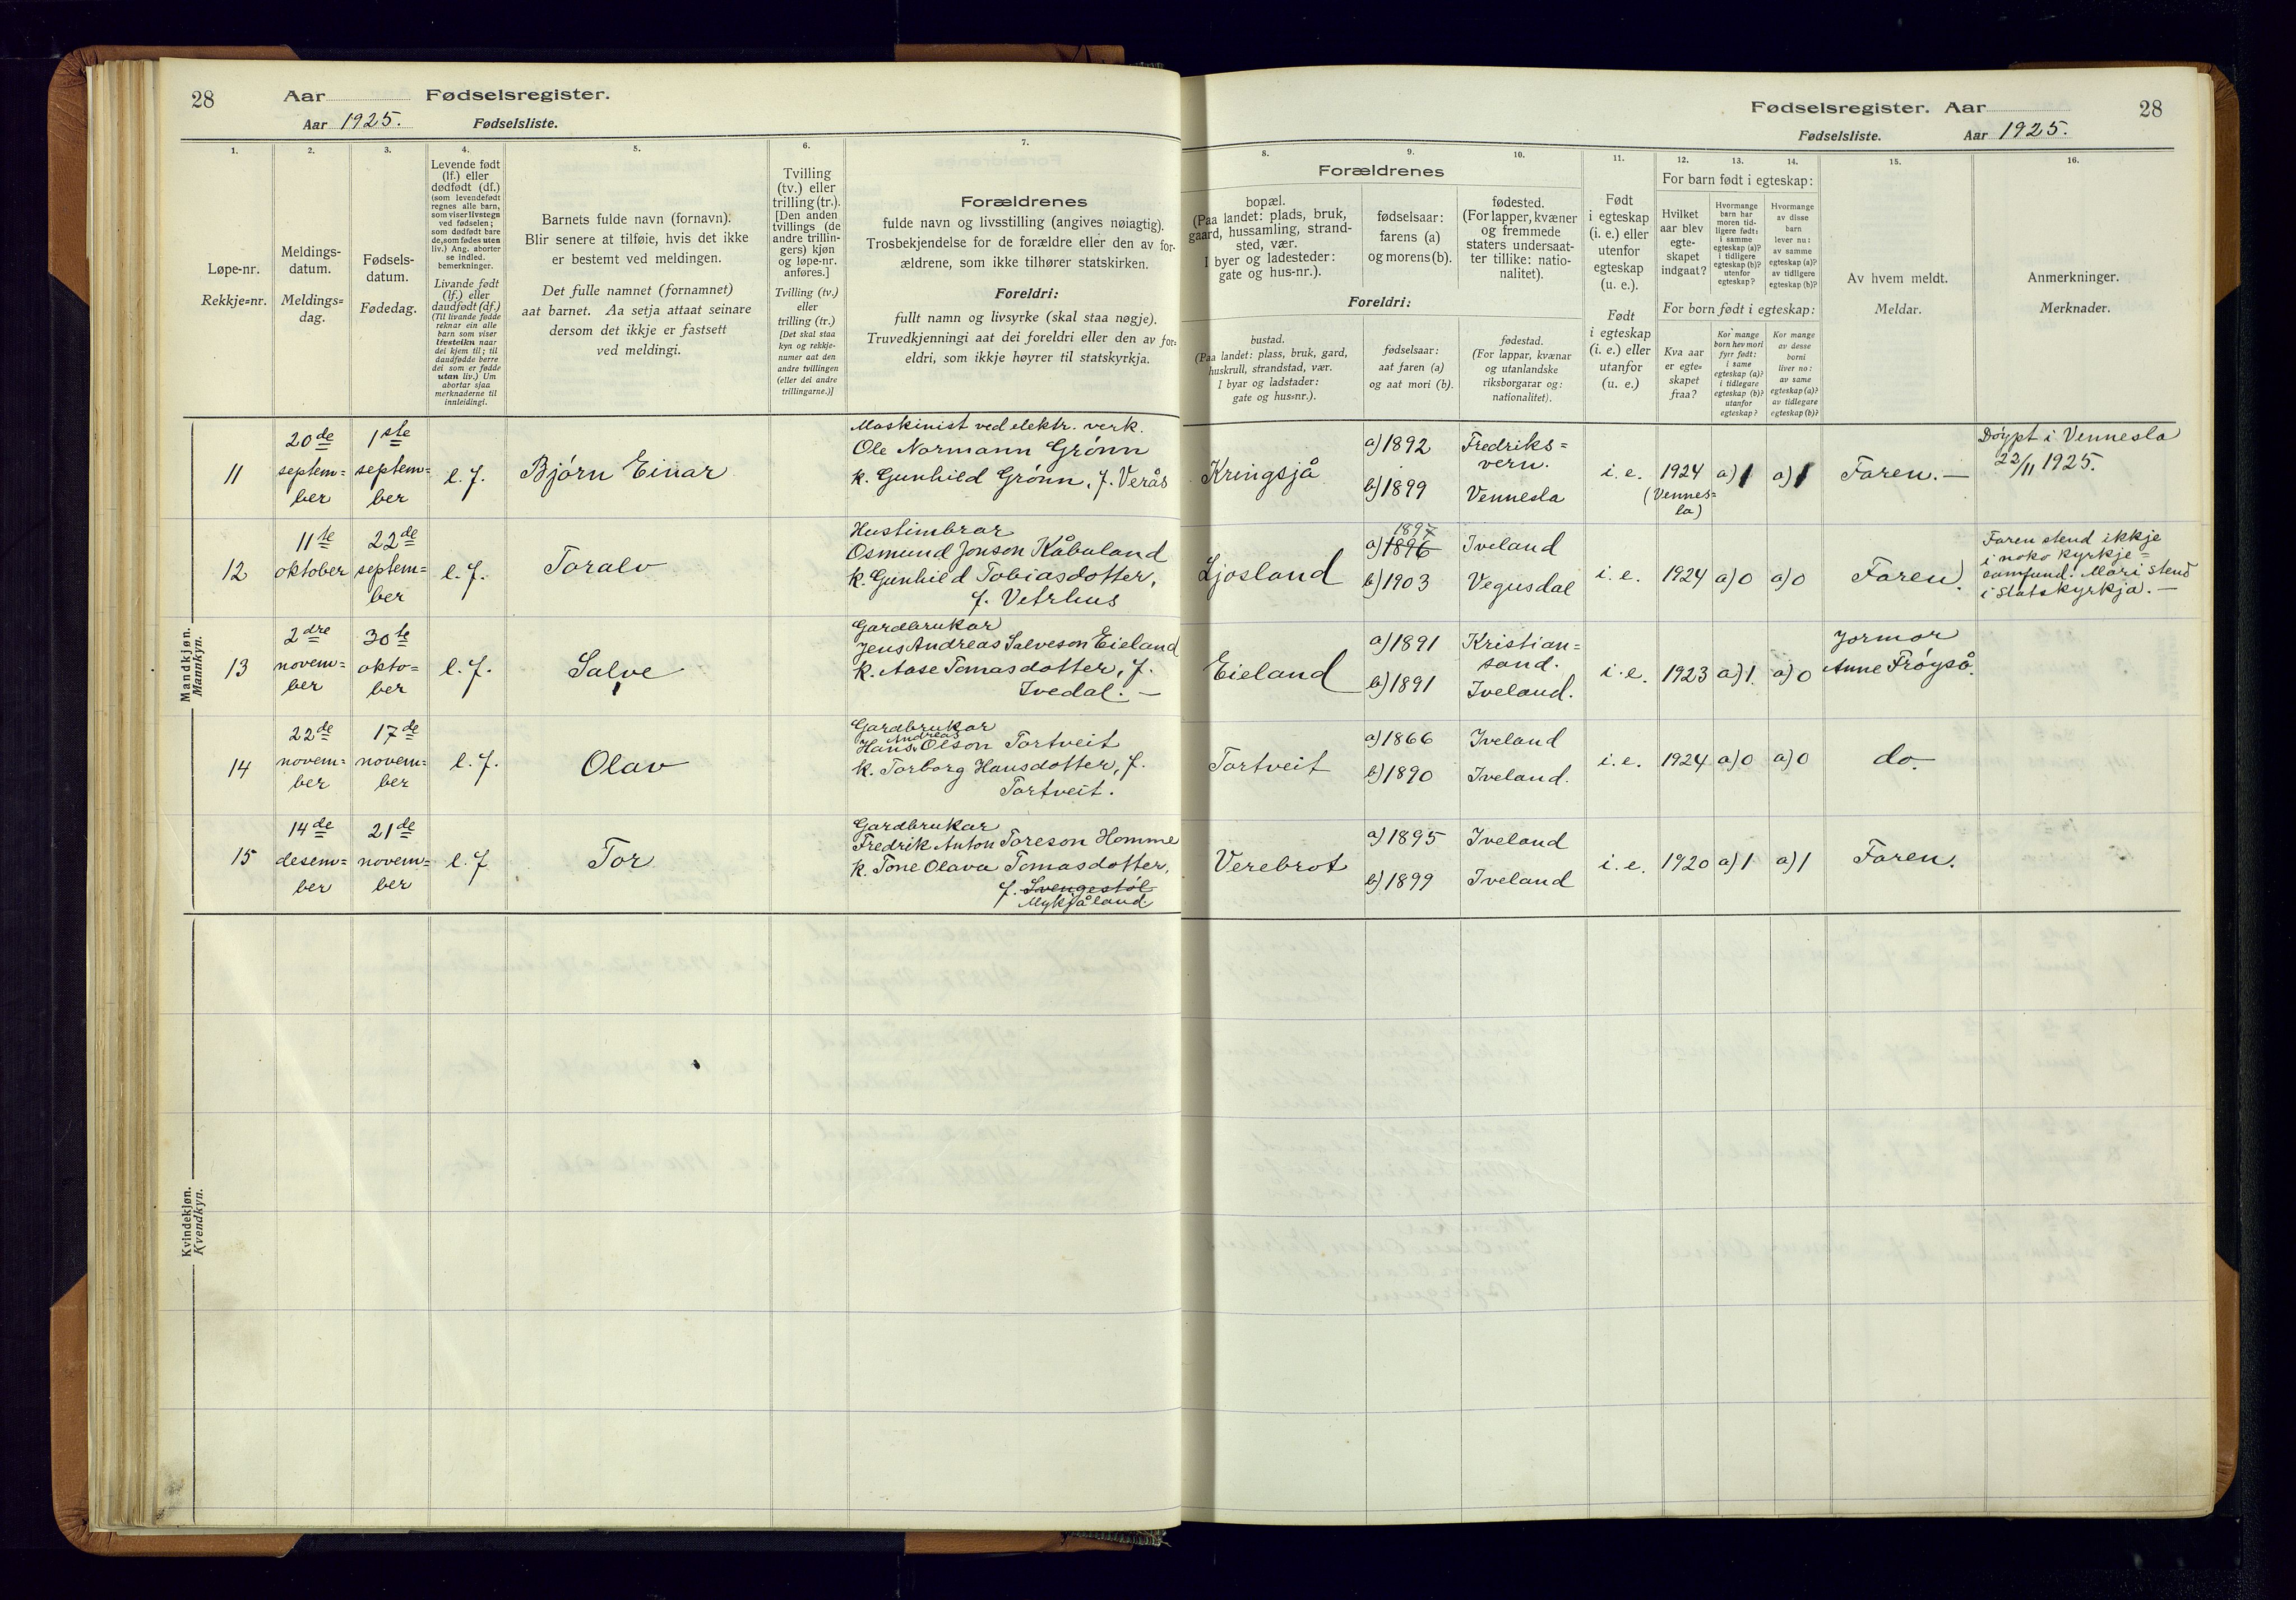 28 Aar Fødselsregister.
Aar 1925. Fødselsliste.
Fødselsregister. Aar 28
Fødselsliste. Aar 1925.
1.
Løpe-nr.
Rekkje=nr.
2.
Meldings-
datum.
Meldings=
dag.
3.
Fødsels-
datum.
Fødedag.
4.
Levende født
(lf.) eller
dødfødt (df.)
(som levendefødt
regnes alle barn,
som viser livstegn
ved fødselen;
som dødfødt bare
de, som fødes uten
liv.) Ang. aborter
se indled.
bemerkninger.
Livande født
(lf.) eller
daudfødt (df.)
(Til livande fødde
reknar ein alle
barn som viser
livsteikn naar
dei kjem til; til
daudfødde berre
dei som er fødde
utan liv.) Um
abortar sjaa
merknaderne til
innleidingi.
5.
Barnets fulde navn (fornavn).
Blir senere at tilføie, hvis det ikke
er bestemt ved meldingen.
Det fulle namnet (fornamnet)
aat barnet. Aa setja attaat seinare
dersom det ikkje er fastsett
ved meldingi.
6.
Tvilling
(tv.) eller
trilling (tr.).
[Den anden
tvillings (de
andre trillin-
gers) kjøn
og løpe-nr.
anføres.]
Tvilling (tv.)
eller
trilling (tr.)
[Det skal staa
kyn og rekkje-
numer aat den
andre tvillingen
(eller dei andre
trillingarne.)]
7.
Forældrenes
fulde navn og livsstilling (angives nøiagtig).
Trosbekjendelse for de forældre eller den av for-
ældrene, som ikke tilhører statskirken.
Foreldri:
fullt namn og livsyrke (skal staa nøgje).
Truvedkjenningi aat dei foreldri eller den av for=
eldri, som ikkje høyrer til statskyrkja.
8.
Forældrenes
bopæl.
(Paa landet: plads, bruk,
gaard, hussamling, strand-
sted, vær.
I byer og ladesteder:
gate og hus-nr.).
Foreldri:
bustad.
(Paa landet: plass, bruk, gard,
huskrull, strandstad, vær.
I byar og ladstader:
gate og hus=nr.).
9.
fødselsaar:
farens (a)
og morens (b).
fødselsaar:
aat faren (a)
og aat mori (b).
10.
fødested.
(For lapper, kvæner
og fremmede
staters undersaat-
ter tillike: natio-
nalitet).
fødestad.
(For lappar, kvænar
og utanlandske
riksborgarar og:
nationalitet).
11.
Født
i egteskap
(i. e.) eller
utenfor
egteskap
(u. e.).
Født
i egteskap
(i. e.) eller
utanfor
(u. e.)
12. 13. 14.
For barn født i egteskap:
Hvilket
aar blev
egte-
skapet
indgaat?
Hvormange
barn har
moren tid-
ligere født:
i samme
egteskap (a)?
i tidligere
egteskap (b)?
utenfor
egteskap?
Hvormange
av disse
barn
lever nu:
av samme
egteskap (a)?
av tidligere
egteskap (b)?
For born født i egteskap:
Kva aar
er egte=
skapet
fraa?
Kor mange
born hev mori
fyrr født:
i same
egteskap (a)?
i tidlegare
egteskap (b)?
utanfor
egteskap?
Kor mange
av desse
borni
liver no:
av same
egteskap (a)?
av tidlegare
egteskap (b)?
15.
Av hvem meldt.
Meldar.
16.
Anmerkninger.
Merknader.
Mandkjøn.
Mannkyn.
11
20de
septem=
ber
1ste
septem=
ber
l. f.
Bjørn Einar
Maskinist ved elektr. verk.
Ole Normann Grønn
k. Gunhild Grønn, f. Verås
Kringsjå
a) 1892
b) 1899
Fredriks=
vern.
Vennesla
i. e.
1924
(Vennes=
la)
a) 1
a) 1
Faren. —
Døypt i Vennesla
22/11 1925.
12
11te
oktober
22de
septem=
ber
l. f.
Toralv
Hustimbrar
Osmund Jonson Kåbuland
k. Gunhild Tobiasdotter,
f. Vetrhus
Ljosland
1897
a) 1896
b) 1903
Iveland
Vegusdal
i. e.
1924
a) 0
a) 0
Faren.
Faren stend ikkje
i noko kyrkje=
samfund. Mori stend
i Statskyrkja. —
13
2dre
novem=
ber
30te
okto=
ber
l. f.
Salve
Gardbrukar
Jens Andreas Salveson Eieland
k. Aase Tomasdotter, f.
Ivedal. —
Eieland
a) 1891
b) 1891
Kristian=
sand.
Iveland.
i. e.
1923
a) 1.
a) 0
Jormor
Anne Frøyså.
14
22de
novem=
ber
17de
novem=
ber
l. f.
Olav
Gardbrukar
Andreas
Hans Olson Tortveit
k. Torborg Hansdotter, f.
Tortveit.
Tortveit
a) 1866
b) 1890
Iveland
Iveland.
i. e.
1924
a) 0
a) 0
do.
15
14de
desem=
ber
21de
novem=
ber
l. f
Tor
Gardbrukar
Fredrik Anton Toreson Homme
k. Tone Olava Tomasdotter,
f. Ivengestøl
Mykjåland.
Verebrot
a) 1895
b) 1899
Iveland
Iveland
i. e.
1920
a) 1
a) 1
Faren.
Kvindekjøn.
Kvendkyn.